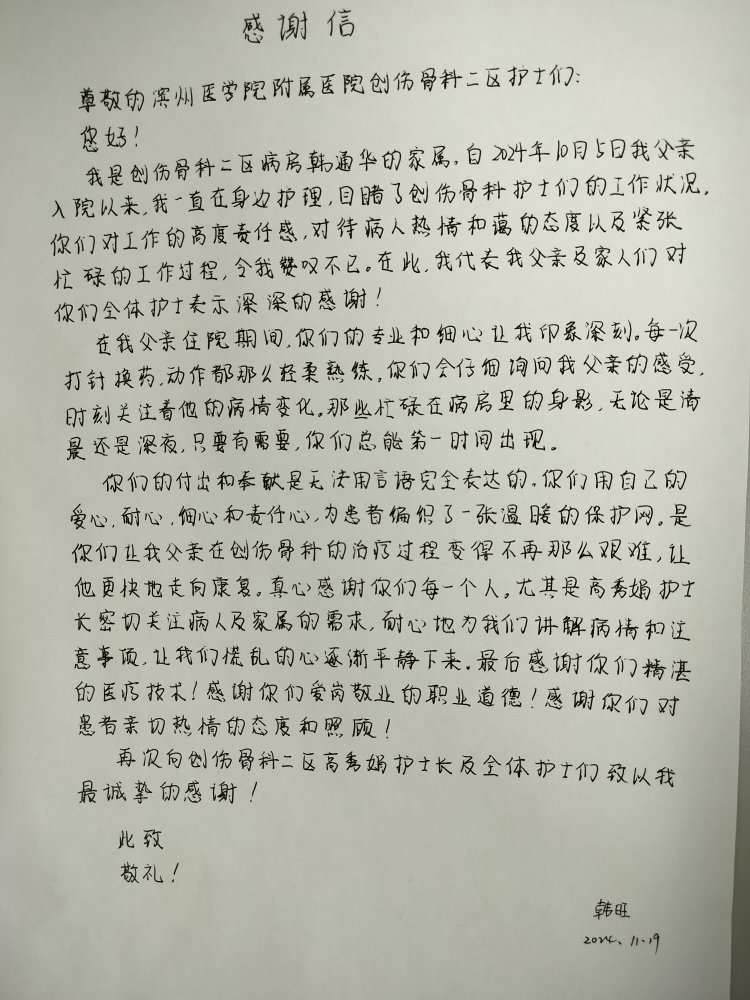 感谢信
尊敬的滨州医学院附属医院创伤骨科二区护士们:
您好!
我是创伤骨科二区病房韩通华的家属。自2024年10月5日我父亲
入院以来,我一直在身边护理,目睹了创伤骨科护士们的工作状况。
你们对工作的高度责任感,对待病人热情和蔼的态度以及紧张
忙碌的工作过程,令我赞叹不已。在此,我代表我父亲及家人们对
你们全体护士表示深深的感谢!
在我父亲住院期间,你们的专业和细心让我印象深刻。每一次
打针换药,动作都那么轻柔熟练。你们会仔细询问我父亲的感受,
时刻关注着他的病情变化。那些忙碌在病房里的身影,无论是清
晨还是深夜,只要有需要,你们总能第一时间出现。
你们的付出和奉献是无法用言语完全表达的。你们用自己的
爱心,耐心,细心和责任心,为患者编织了一张温暖的保护网。是
你们让我父亲在创伤骨科的治疗过程变得不再那么艰难,让
他更快地走向康复。真心感谢你们每一个人。尤其是高秀娟护士
长密切关注病人及家属的需求,耐心地为我们讲解病情和注
意事项,让我们慌乱的心逐渐平静下来。最后感谢你们精湛
的医疗技术!感谢你们爱岗敬业的职业道德!感谢你们对
患者亲切热情的态度和照顾!
再次向创伤骨科二区高秀娟护士长及全体护士们致以我
最诚挚的感谢!
此致
敬礼!
韩旺
2024、11.19